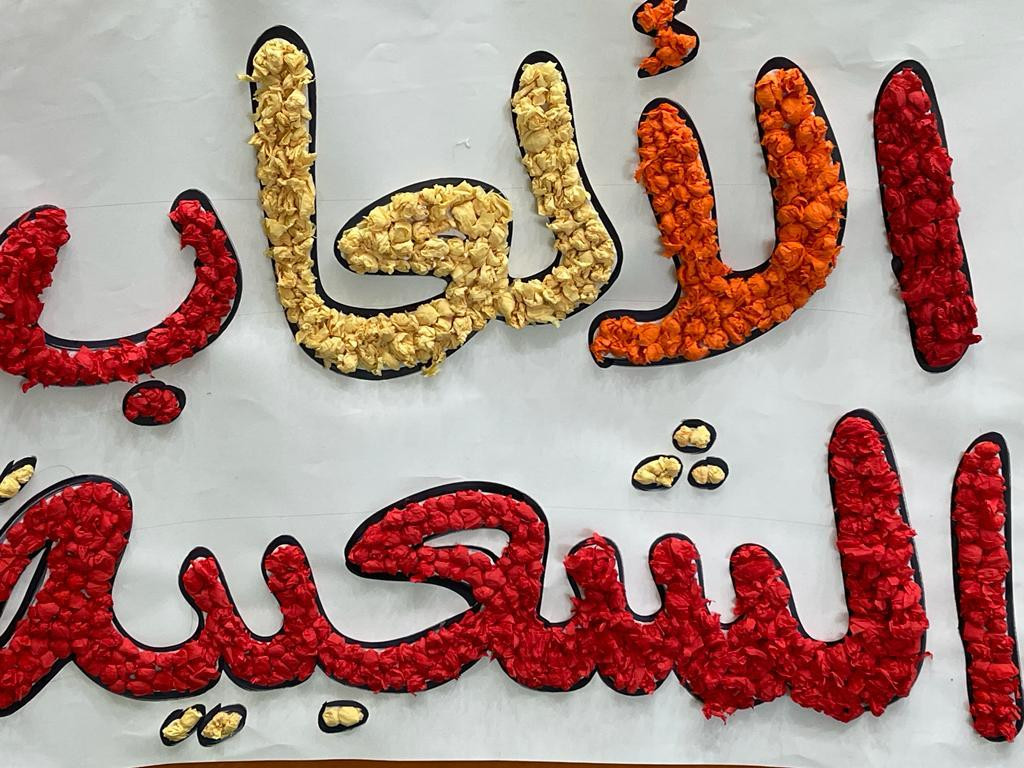 الألعاب
الشعبية